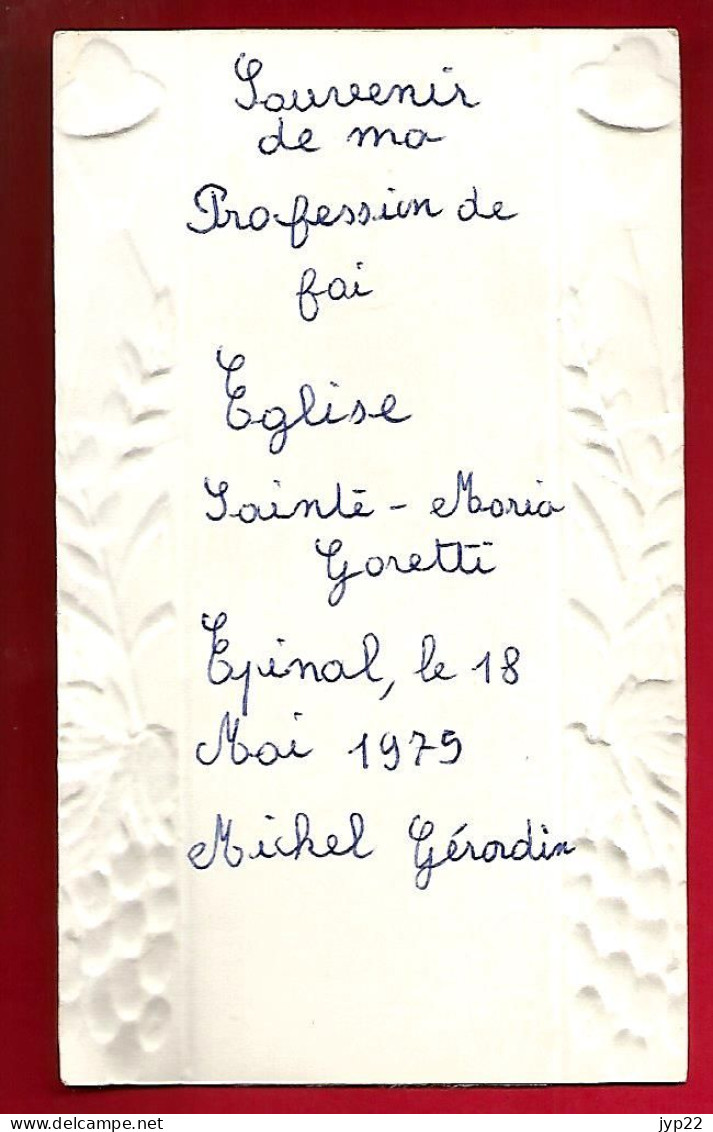 Souvenir
de ma
Profession de
foi
Eglise
Sainte - Maria
Goretti
Epinal, le 18
Mai 1975
Michel Gérardin
delcampe.net
jyp22